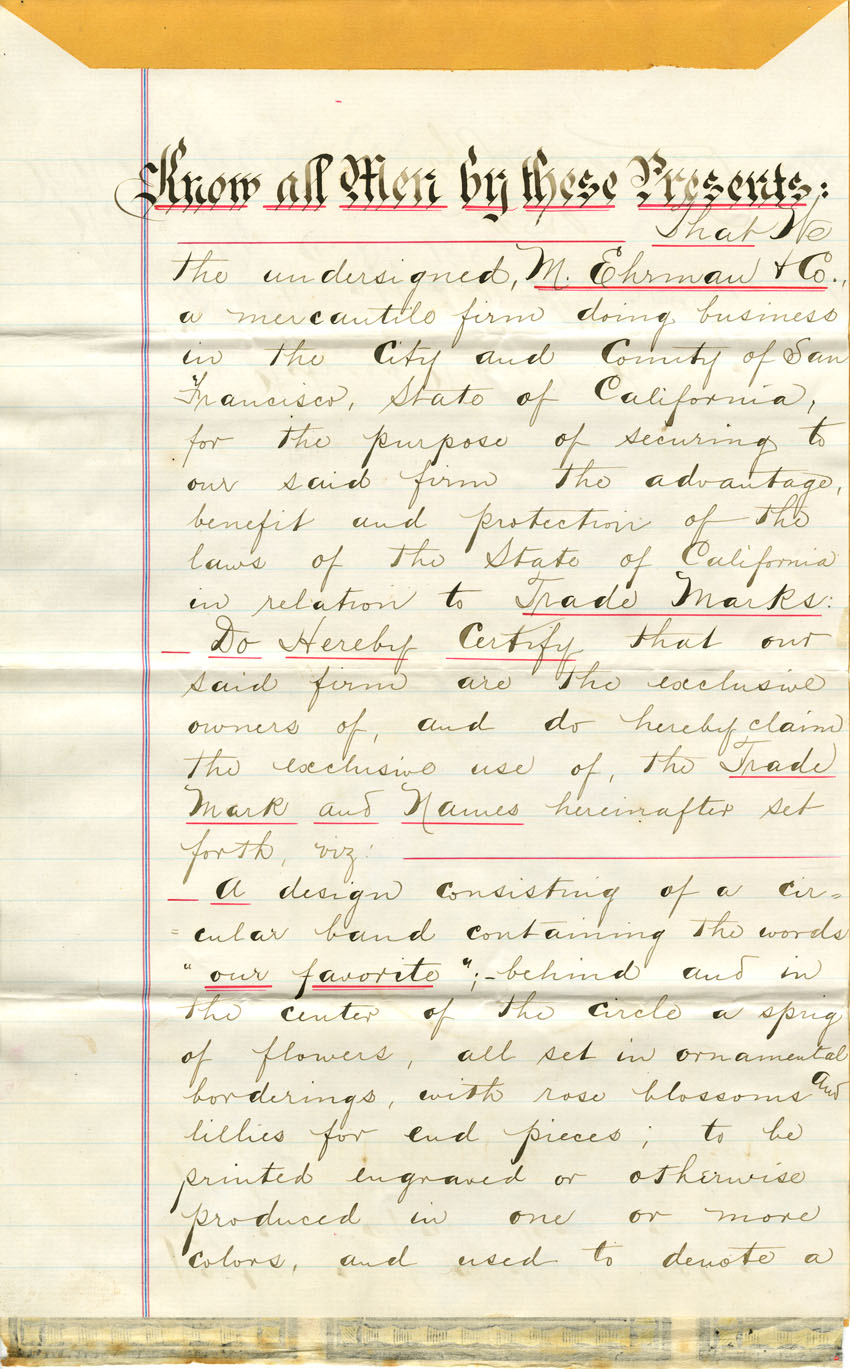 Know all Men by these Presents:
That We
the undersigned, M. Ehrman & Co.,
a mercantile firm doing business
in the City and County of San
Francisco, State of California,
for the purpose of securing to
our said firm the advantage,
benefit and protection of the
laws of the State of California
in relation to Trade Marks:
Do Hereby Certify that our
said firm are the exclusive
owners of, and do hereby claim
the exclusive use of, the Trade
Mark and Names hereinafter set
forth, viz:
A design consisting of a cir=
=cular band containing the words
"our favorite";-behind and in
the center of the circle a sprig
of flowers, all set in ornamental
borderings, with rose blossoms and
lillies for end pieces; to be
printed engraved or otherwise
produced in one or more
colors, and used to denote a